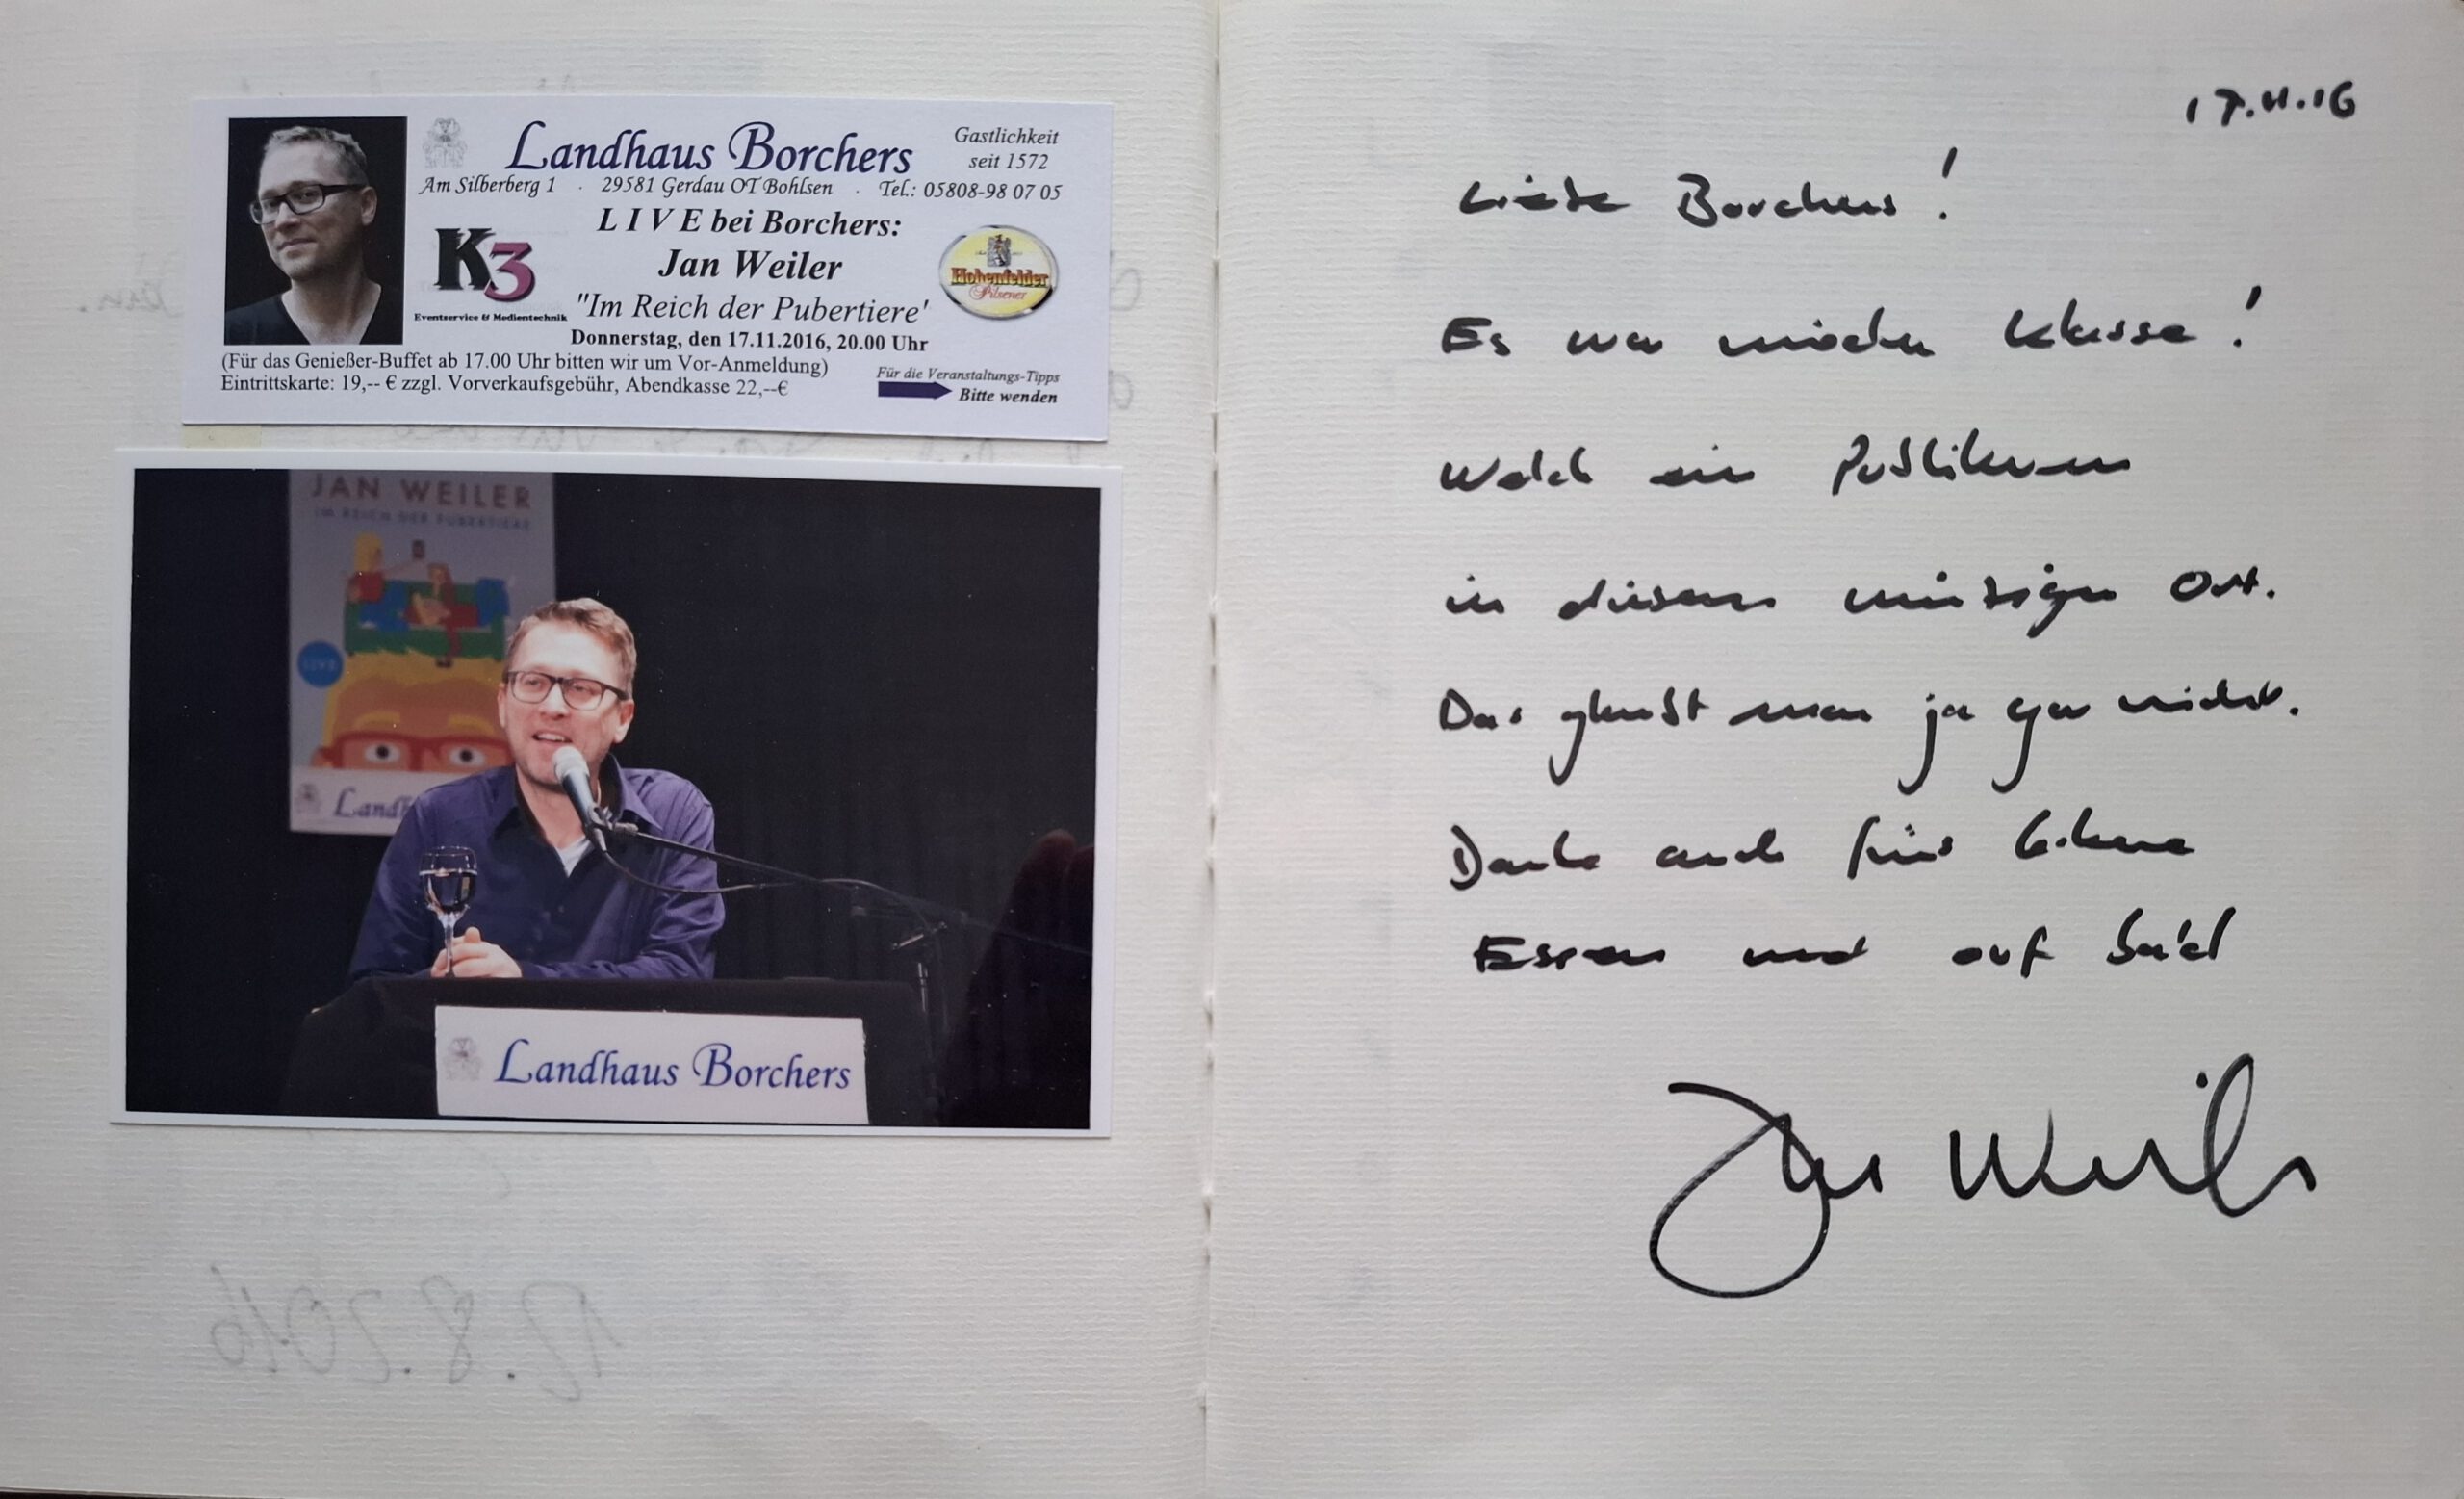 Landhaus Borchers
Gastlichkeit
seit 1572
Am Silberberg 1 · 29581 Gerdau OT Bohlsen · Tel.: 05808-98 07 05
L I V E bei Borchers:
K3
Eventservice & Medientechnik
Jan Weiler
Hohenfelder
Pilsener
"Im Reich der Pubertiere'
Donnerstag, den 17.11.2016, 20.00 Uhr
(Für das Genießer-Buffet ab 17.00 Uhr bitten wir um Vor-Anmeldung)
Eintrittskarte: 19,-- € zzgl. Vorverkaufsgebühr, Abendkasse 22,--€
Für die Veranstaltungs-Tipps
Bitte wenden
JAN WEILER
IM REICH DER PUBERTIERE
LIVE
Landh
Landhaus Borchers
12.8.2016
17.11.16
Liebe Borchers!
Es war wieder klasse!
Welch ein Publikum
in diesem winzigen Ort.
Das glaubt man ja gar nicht.
Danke auch fürs leckere
Essen und auf bald
Jan Weiler